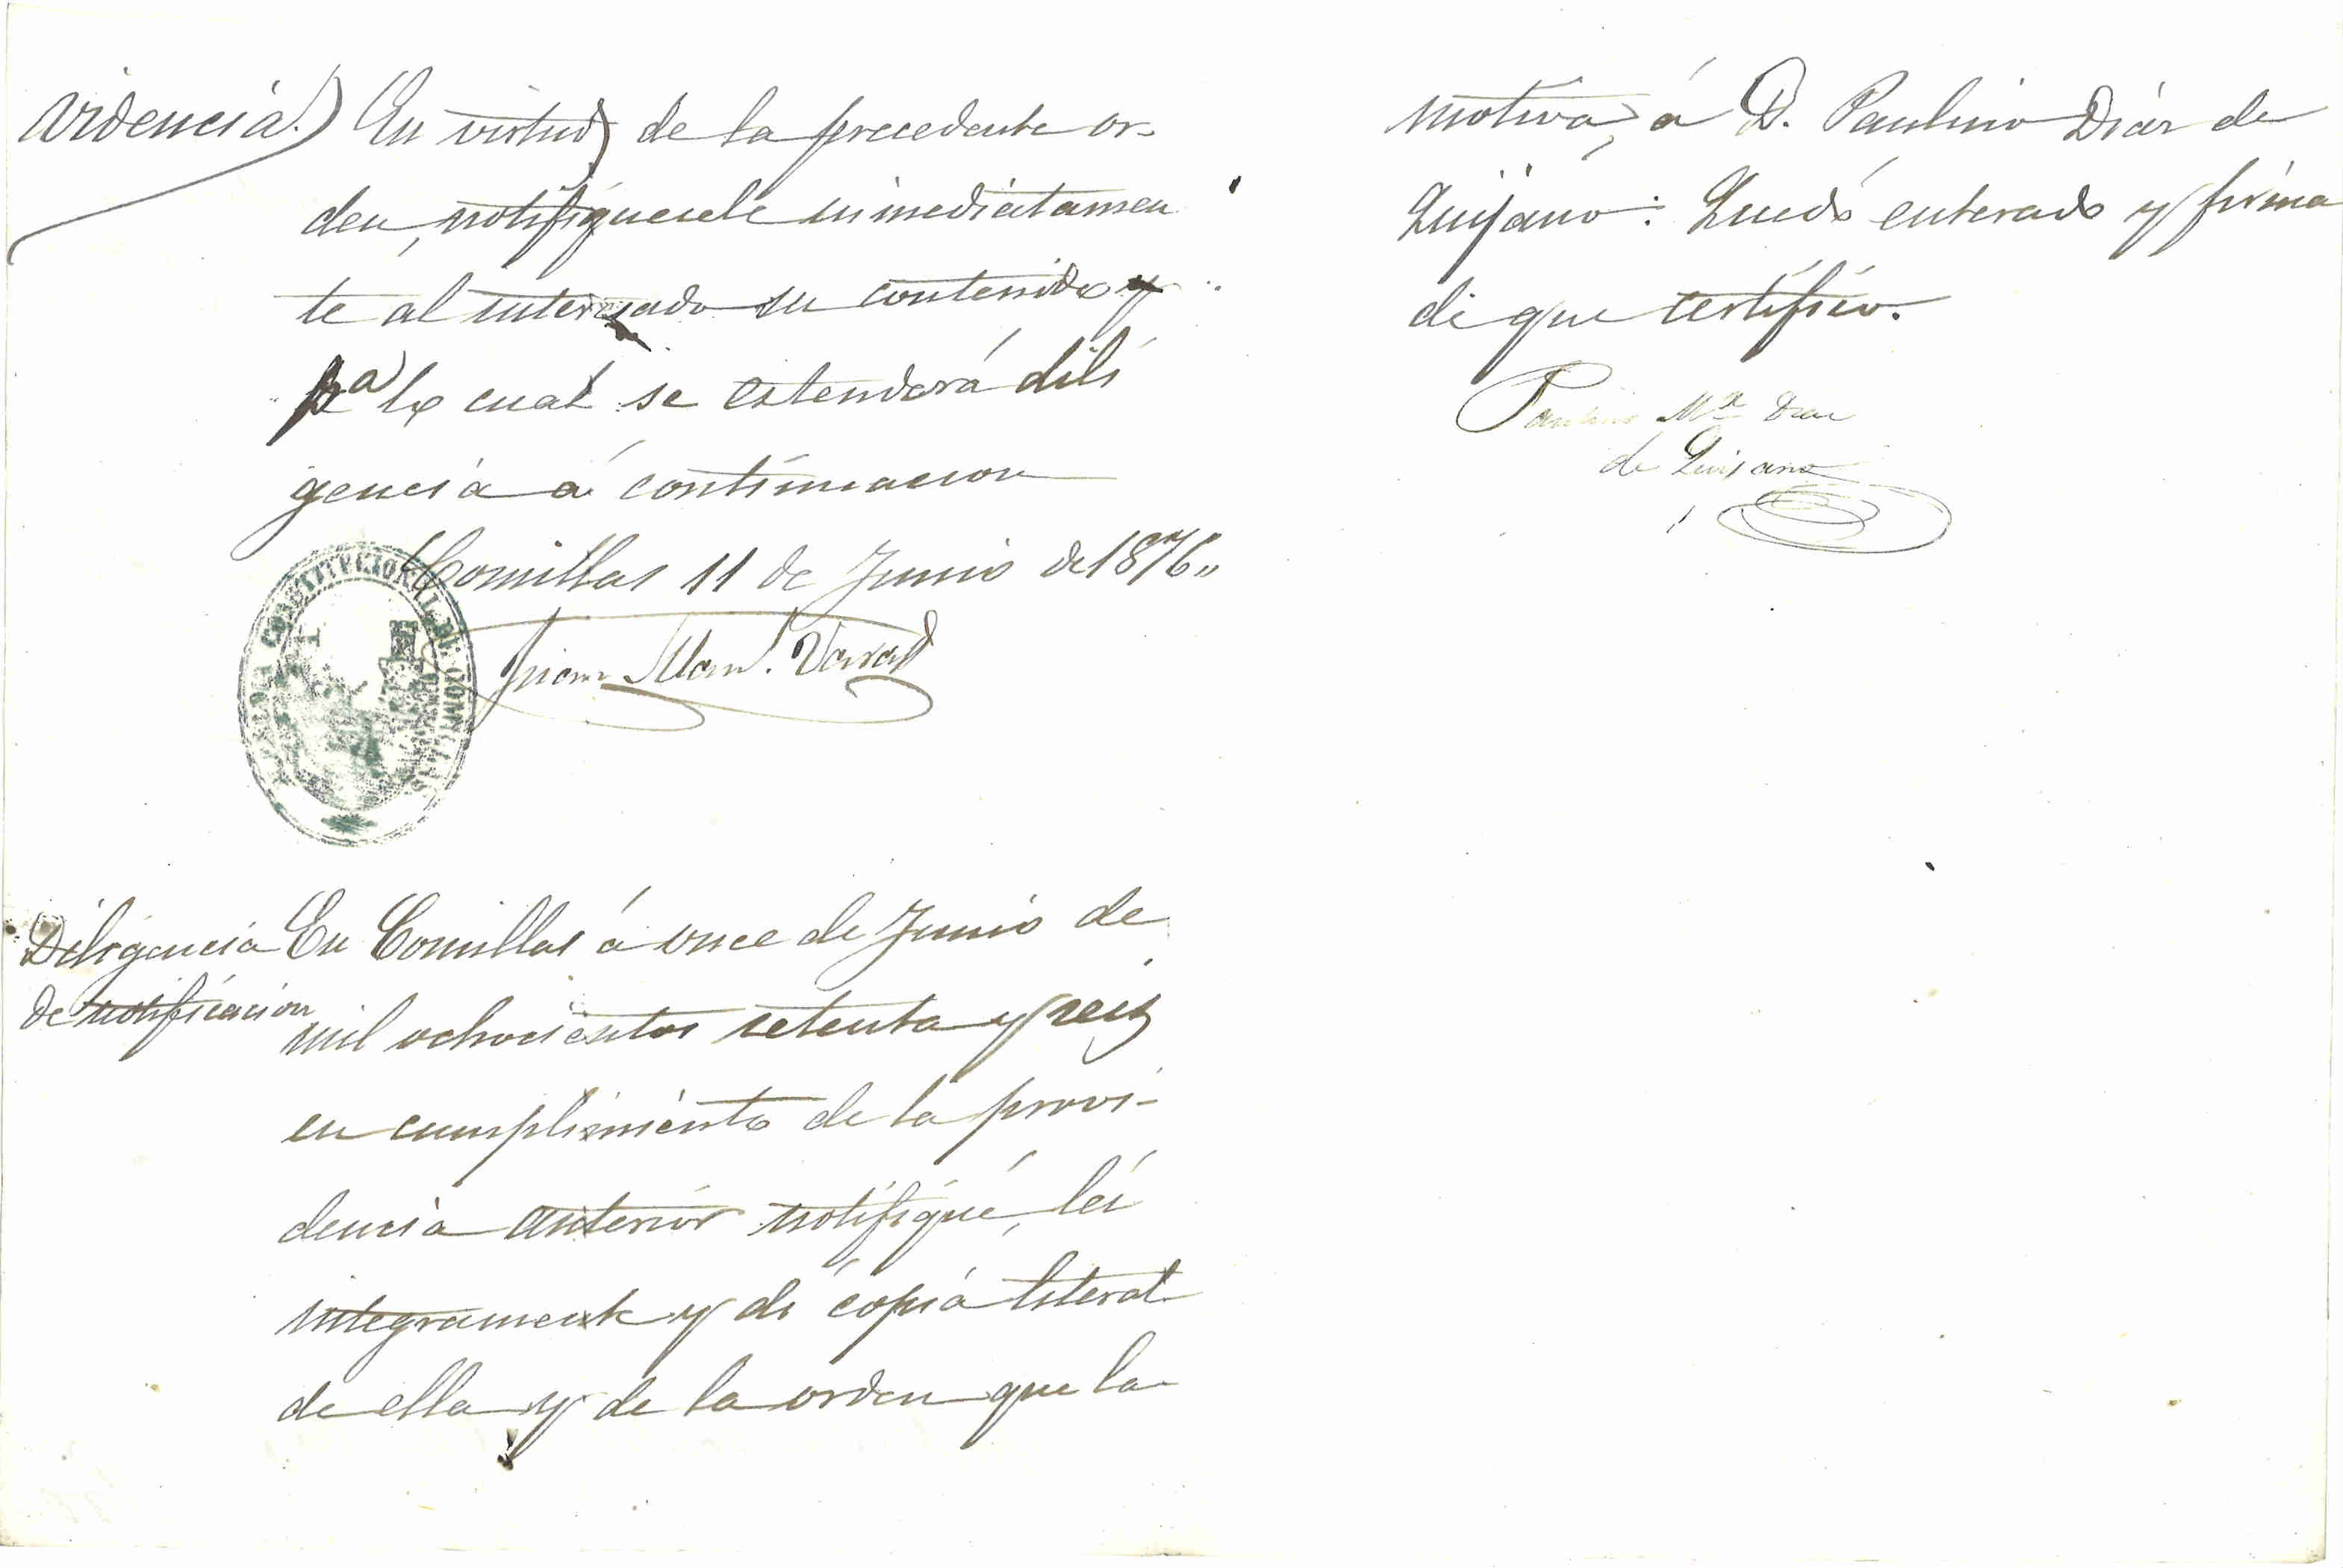 videncia.) En virtud de la precedente or-
den, notifiquesele inmediatamen
te al interesado su contenido y
pa lo cual se estenderá dili
gencia á continuacion
Comillas 11 de Junio de 1876
Juan Man.
CONSTITUCIONAL DE COMILLAS
Diligencia
de notificacion
En Comillas á once de Junio de
mil ochocientos setenta y seis
en cumplimiento de la provi-
dencia anterior notifiqué, leí
integramente y dí copia literal
de ella y de la orden que la
motiva, á D. Paulino Diaz de
Quijano: Quedó enterado y firma
de que certifico.
Paulino Mª Diaz
de Quijano